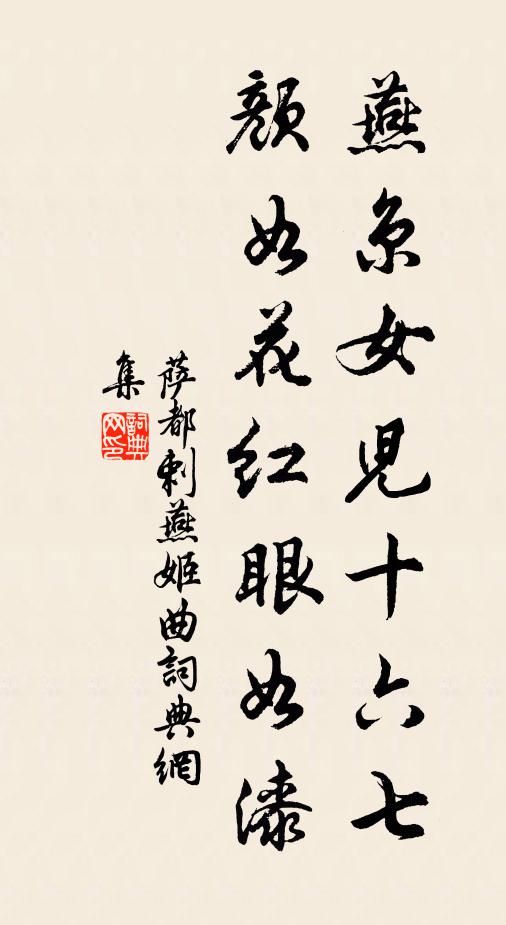 燕京女児十六七
顏如花紅眼如漆
薩都剌燕姬曲詞典網
集
詞典网印